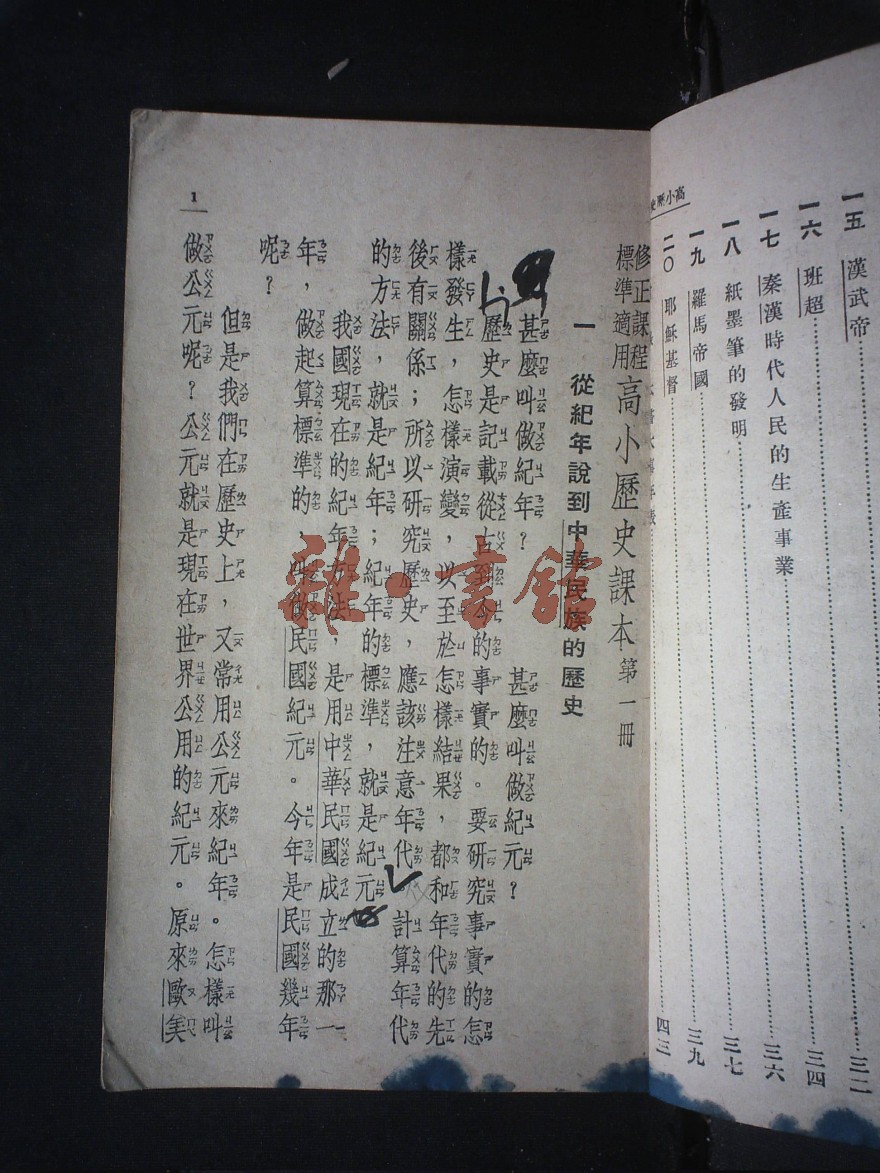 高小歷史
一五 漢武帝 三二
一六 班超 三四
一七 秦漢時代人民的生產事業 三六
一八 紙墨筆的發明 三七
一九 羅馬帝國 三九
二〇 耶穌基督 四三
修正課程
標準適用
高小歷史課本 第一冊
一 從紀年說到中華民族的歷史
甚麼叫做紀年? 甚麼叫做紀元?
歷史是記載從古到今的事實的。要研究事實的怎
樣發生,怎樣演變,以至於怎樣結果,都和年代的先
後有關係;所以研究歷史,應該注意年代 計算年代
的方法,就是紀年;紀年的標準,就是紀元
我國現在的紀年方法,是用中華民國成立的那一
年,做起算標準的 叫做民國紀元。今年是民國幾年
呢?
但是我們在歷史上,又常用公元來紀年。怎樣叫
做公元呢?公元就是現在世界公用的紀元。原來歐美
1
雜·書館